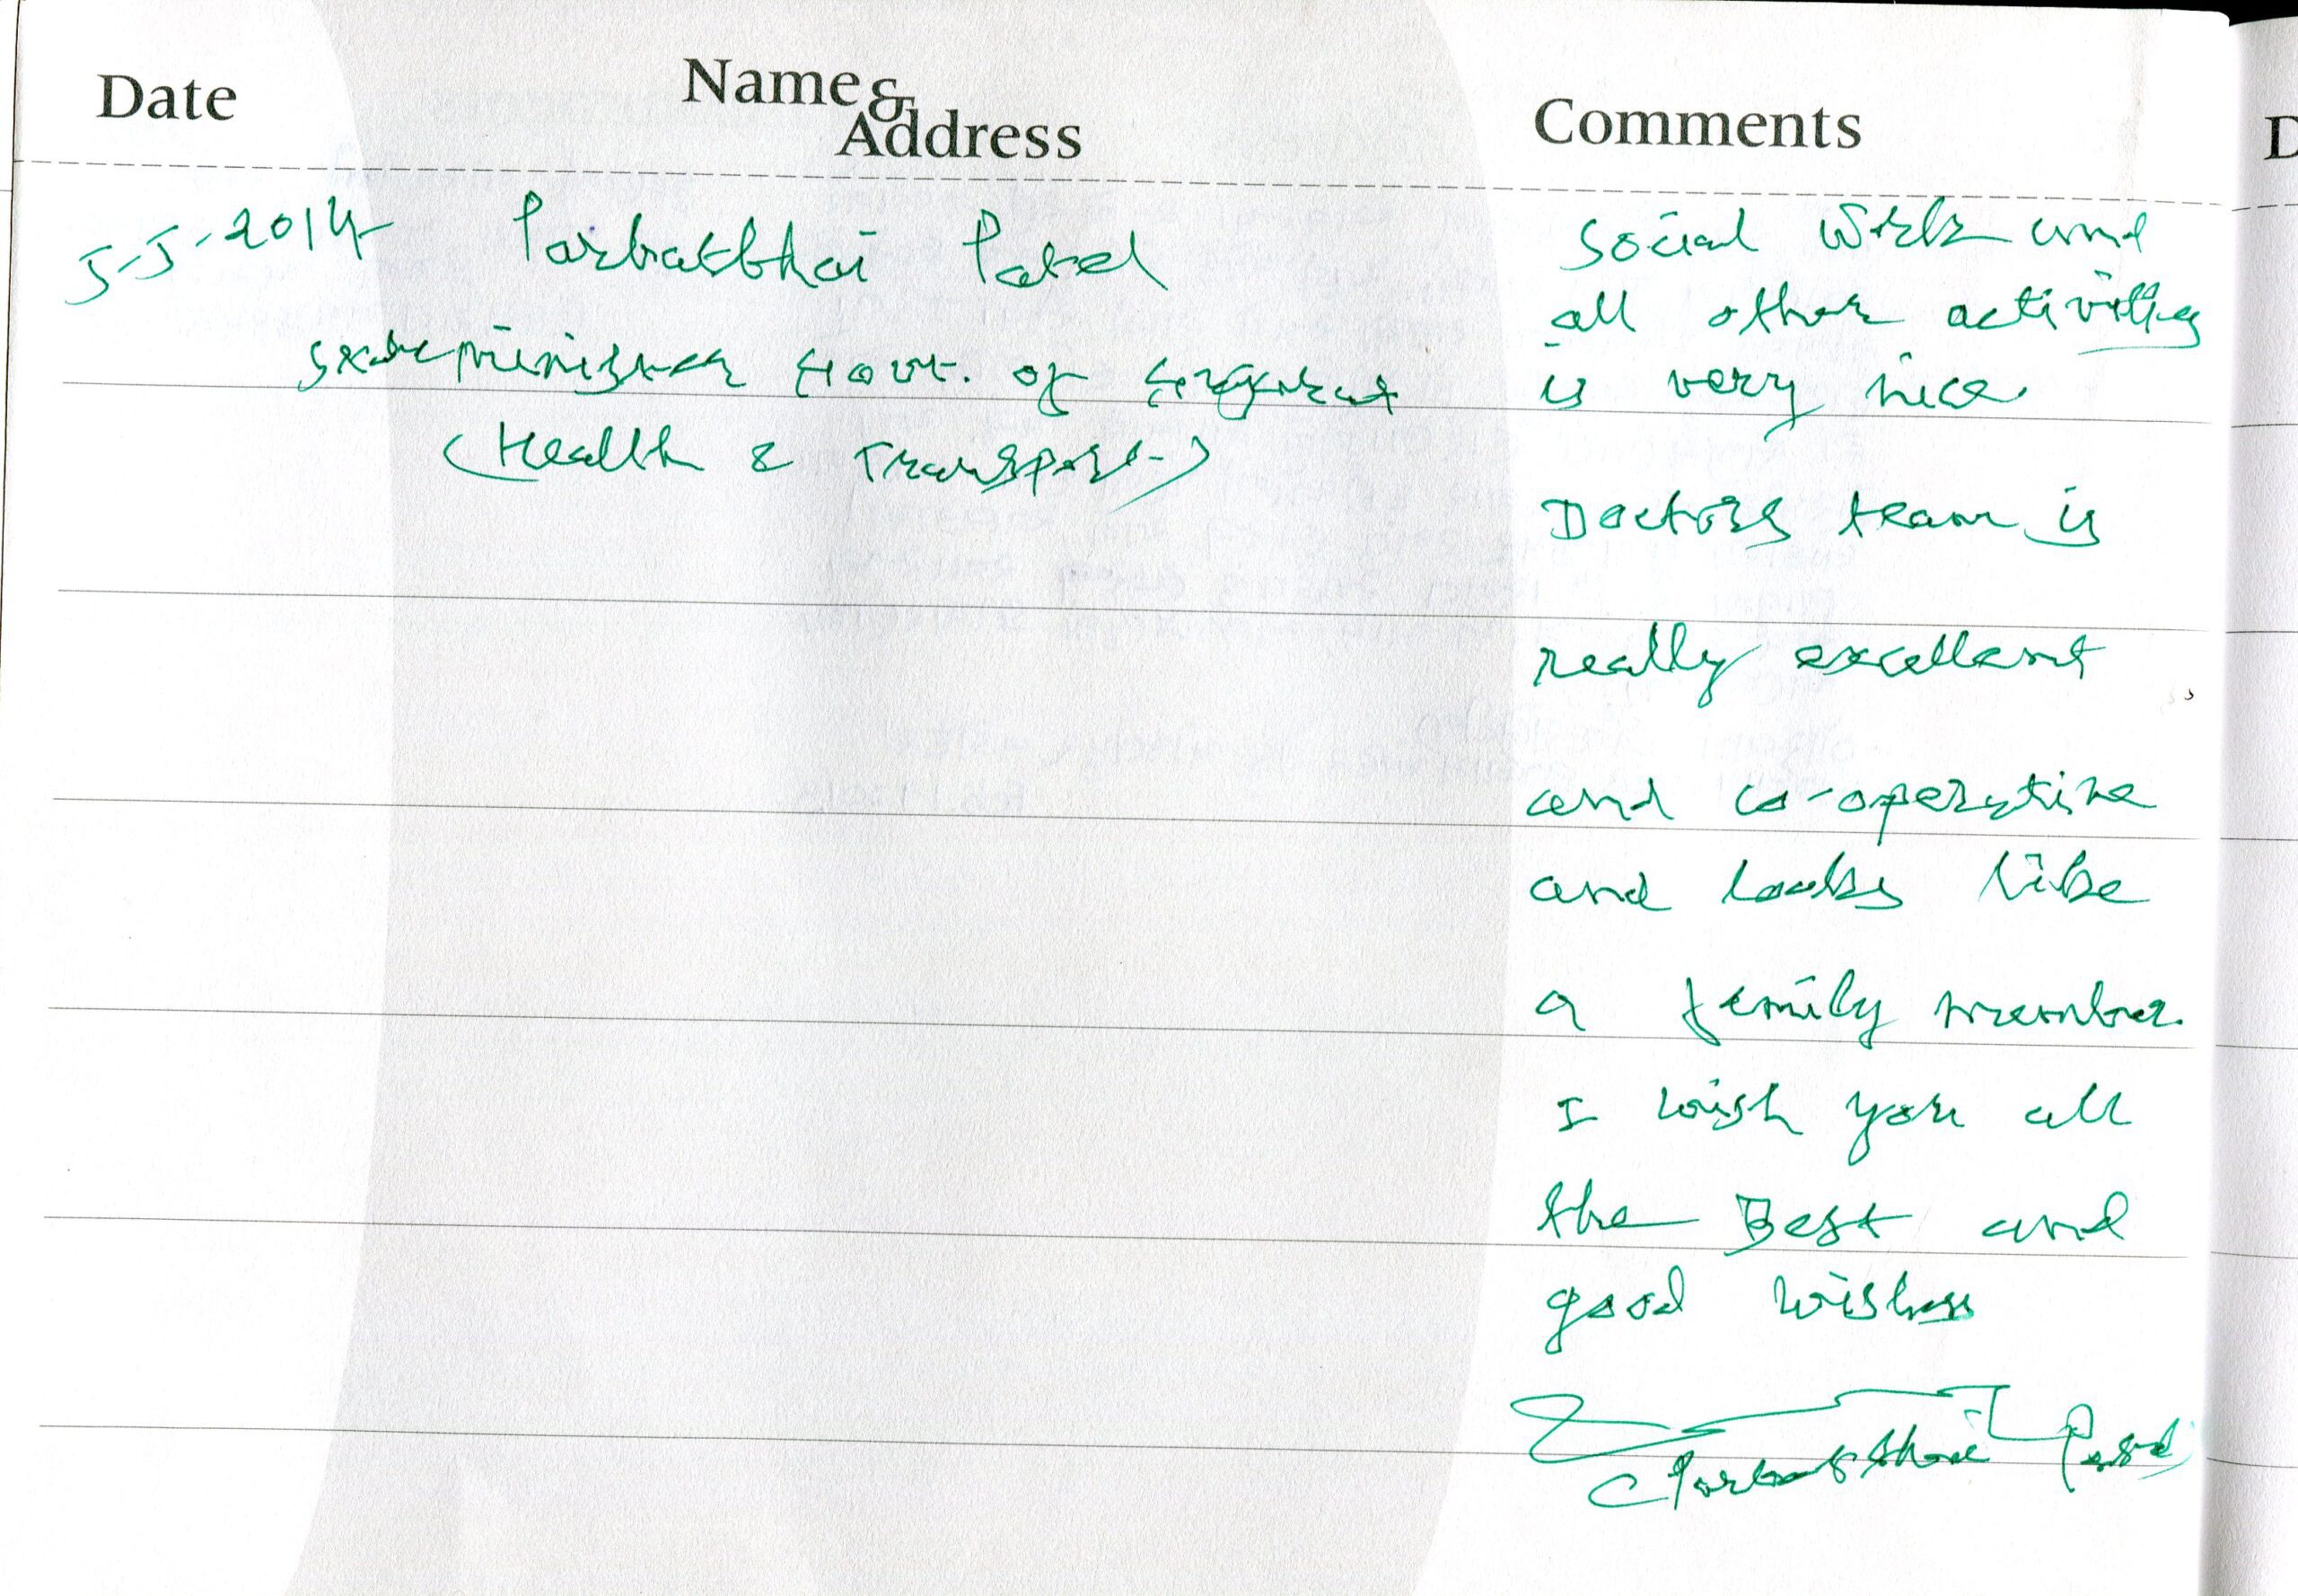 Date
Name &
Address
Comments
D
5-5-2014
Parbatbhai Patel
minister Govt. of Gujarat
(Health & Transport)
Social Work and
all other activities
is very nice.
Doctors team is
really excellent
and co-operative
and looks like
a family member.
I wish you all
the Best and
good wishes
(Parbatbhai Patel)